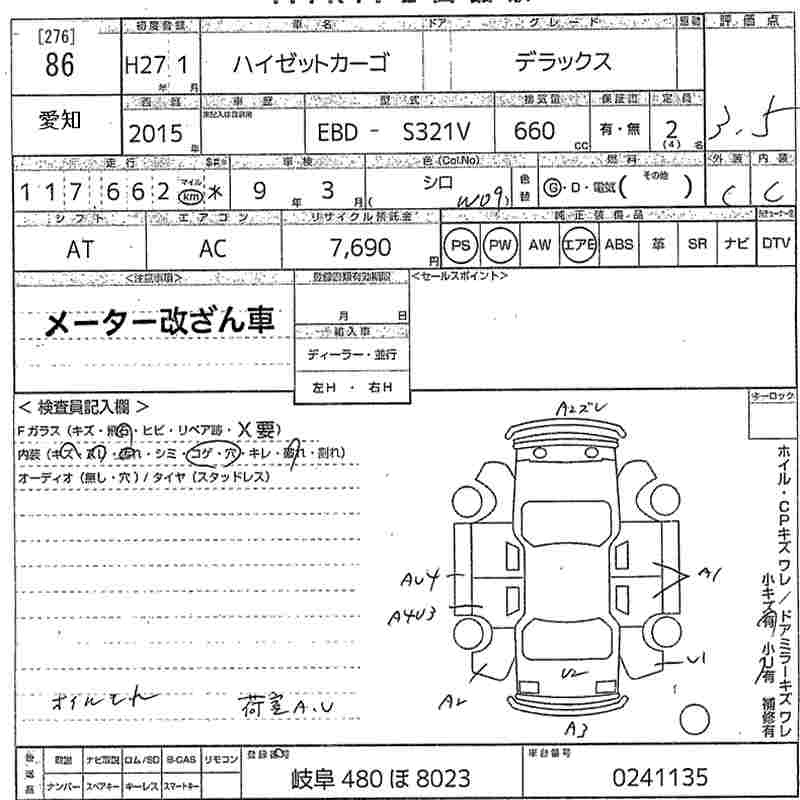 [276]
86
初度登録
車名
ドア
グレード
駆動
評価点
H27 1
年 月
ハイゼットカーゴ
デラックス
愛知
車歴
型式
排気量
保証書
定員
2015
年
EBD - S321V
660
cc
有・無
2
(4) 名
3.5
走行
車検
色(Col.No)
燃料
外装
内装
117,662
マイル
km
9 年 3 月
シロ
( W09 )
色替
G・D・電気( その他 )
C
C
シフト
エアコン
リサイクル預託金
純正装備品
AT
AC
7,690
円
PS
PW
AW
エアB
ABS
革
SR
ナビ
DTV
<注意事項>
登録書類有効期限
<セールスポイント>
メーター改ざん車
月 日
輸入車
ディーラー・並行
左H ・ 右H
< 検査員記入欄 >
キーロック
Fガラス (キズ・飛石・ヒビ・リペア跡・X要)
オーディオ (無し・穴) / タイヤ (スタッドレス)
A2ズレ
AU4
A4U3
A1
A2
U2
U1
A3
オイルモレ
荷室A.U
ホイル・CPキズワレ/ドアミラーキズワレ
小キズ有/小U有 補修有
取説
ナビ取説
ロム/SD
B-CAS
リモコン
登録番号
車台番号
ナンバー
スペアキー
キーレス
スマートキー
岐阜 480 ほ 8023
0241135